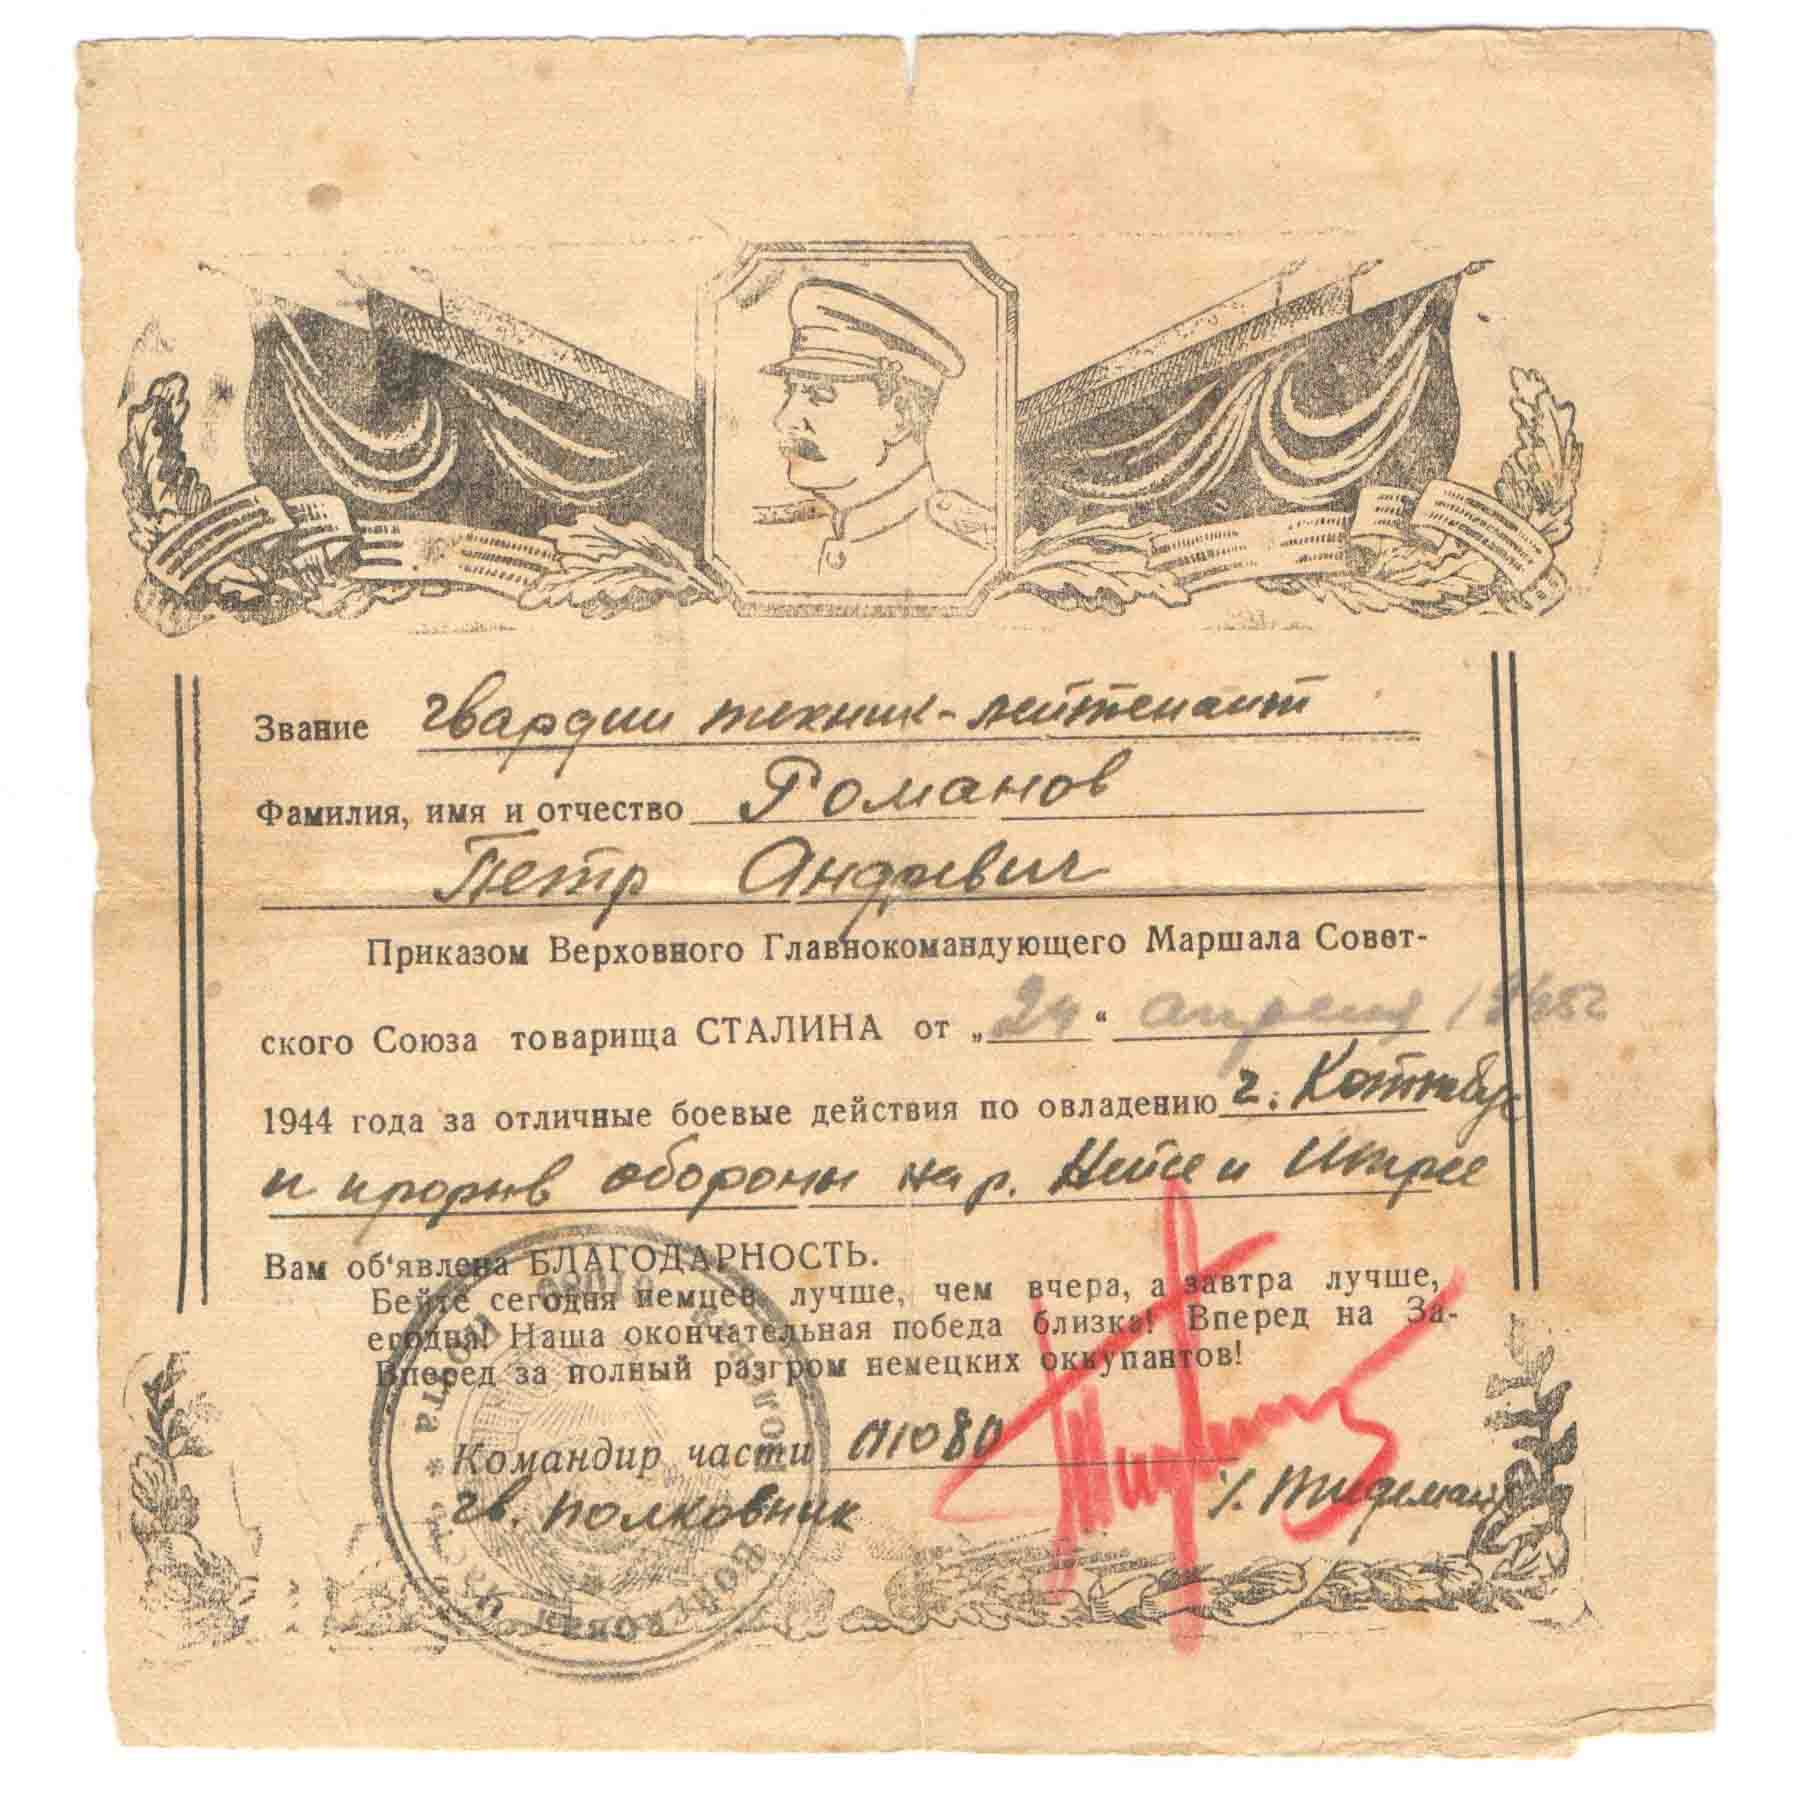 Звание гвардии техник-лейтенант
Фамилия, имя и отчество Романов
Петр Андреевич
Приказом Верховного Главнокомандующего Маршала Совет-
ского Союза товарища СТАЛИНА от „24“ апреля 1945г
1944 года за отличные боевые действия по овладению г. Котбус
и прорыв обороны на р. Нейсе и Шпрее
Вам об'явлена БЛАГОДАРНОСТЬ.
Бейте сегодня немцев лучше, чем вчера, а завтра лучше,
егодня! Наша окончательная победа близка! Вперед на За-
Вперед за полный разгром немецких оккупантов!
Командир части 01080
гв. полковник /. Тидеман